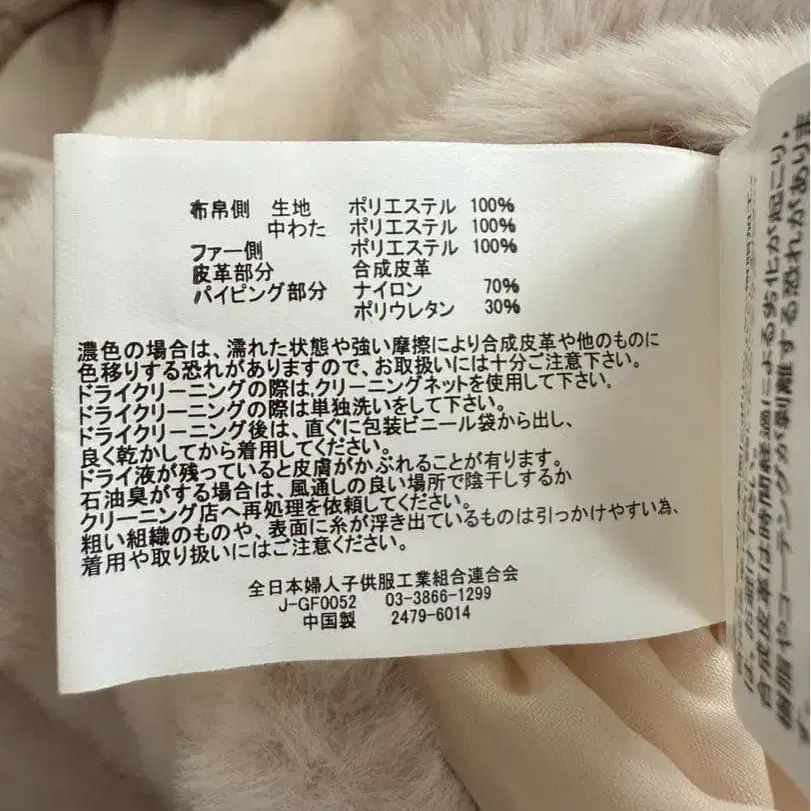 布帛側 生地 ポリエステル 100%
中わた ポリエステル 100%
ファー側 ポリエステル 100%
皮革部分 合成皮革
パイピング部分 ナイロン 70%
ポリウレタン 30%
濃色の場合は、濡れた状態や強い摩擦により合成皮革や他のものに
色移りする恐れがありますので、お取扱いには十分ご注意下さい。
ドライクリーニングの際は、クリーニングネットを使用して下さい。
ドライクリーニングの際は単独洗いをして下さい。
ドライクリーニング後は、直ぐに包装ビニール袋から出し、
良く乾かしてから着用してください。
ドライ液が残っていると皮膚がかぶれることが有ります。
石油臭がする場合は、風通しの良い場所で陰干しするか
クリーニング店へ再処理を依頼してください。
粗い組織のものや、表面に糸が浮き出ているものは引っかけやすい為、
着用や取り扱いにはご注意ください。
全日本婦人子供服工業組合連合会
J-GF0052 03-3866-1299
中国製 2479-6014
合成皮革は時間経過による劣化が起こり、
樹脂やコーテングが剥離する恐れがありま